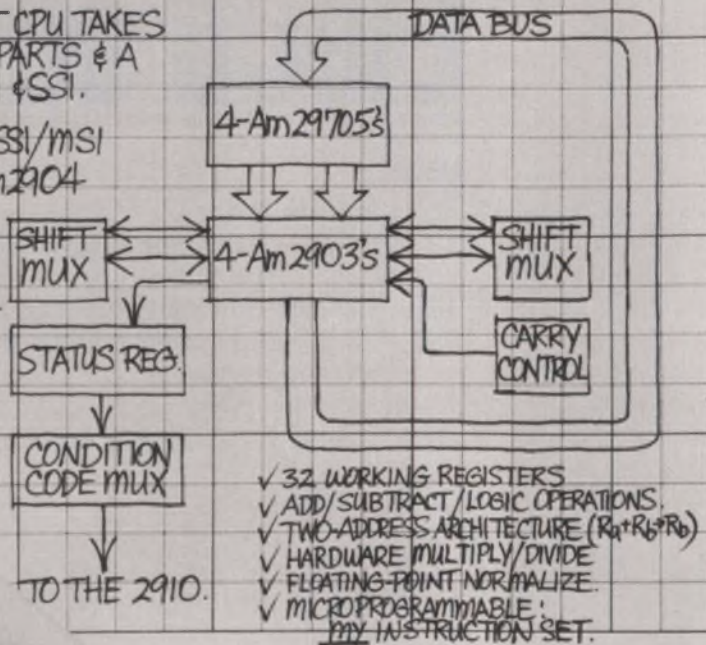 T CPU TAKES
PARTS & A
& SSI.
SSI/MSI
2904
DATA BUS
4-Am29705's
SHIFT
MUX
4-Am2903's
SHIFT
MUX
STATUS REG.
CARRY
CONTROL
CONDITION
CODE MUX
TO THE 2910.
✓ 32 WORKING REGISTERS
✓ ADD/SUBTRACT/LOGIC OPERATIONS.
✓ TWO-ADDRESS ARCHITECTURE (Ra+Rb→Rb)
✓ HARDWARE MULTIPLY/DIVIDE
✓ FLOATING-POINT NORMALIZE.
✓ MICROPROGRAMMABLE:
MY INSTRUCTION SET.